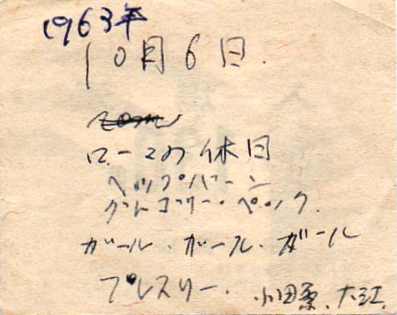 1963年
10月6日.
ローマの休日
ヘップバーン
グレゴリー・ペック.
ガール・ガール・ガール
プレスリー. 小田原、大江